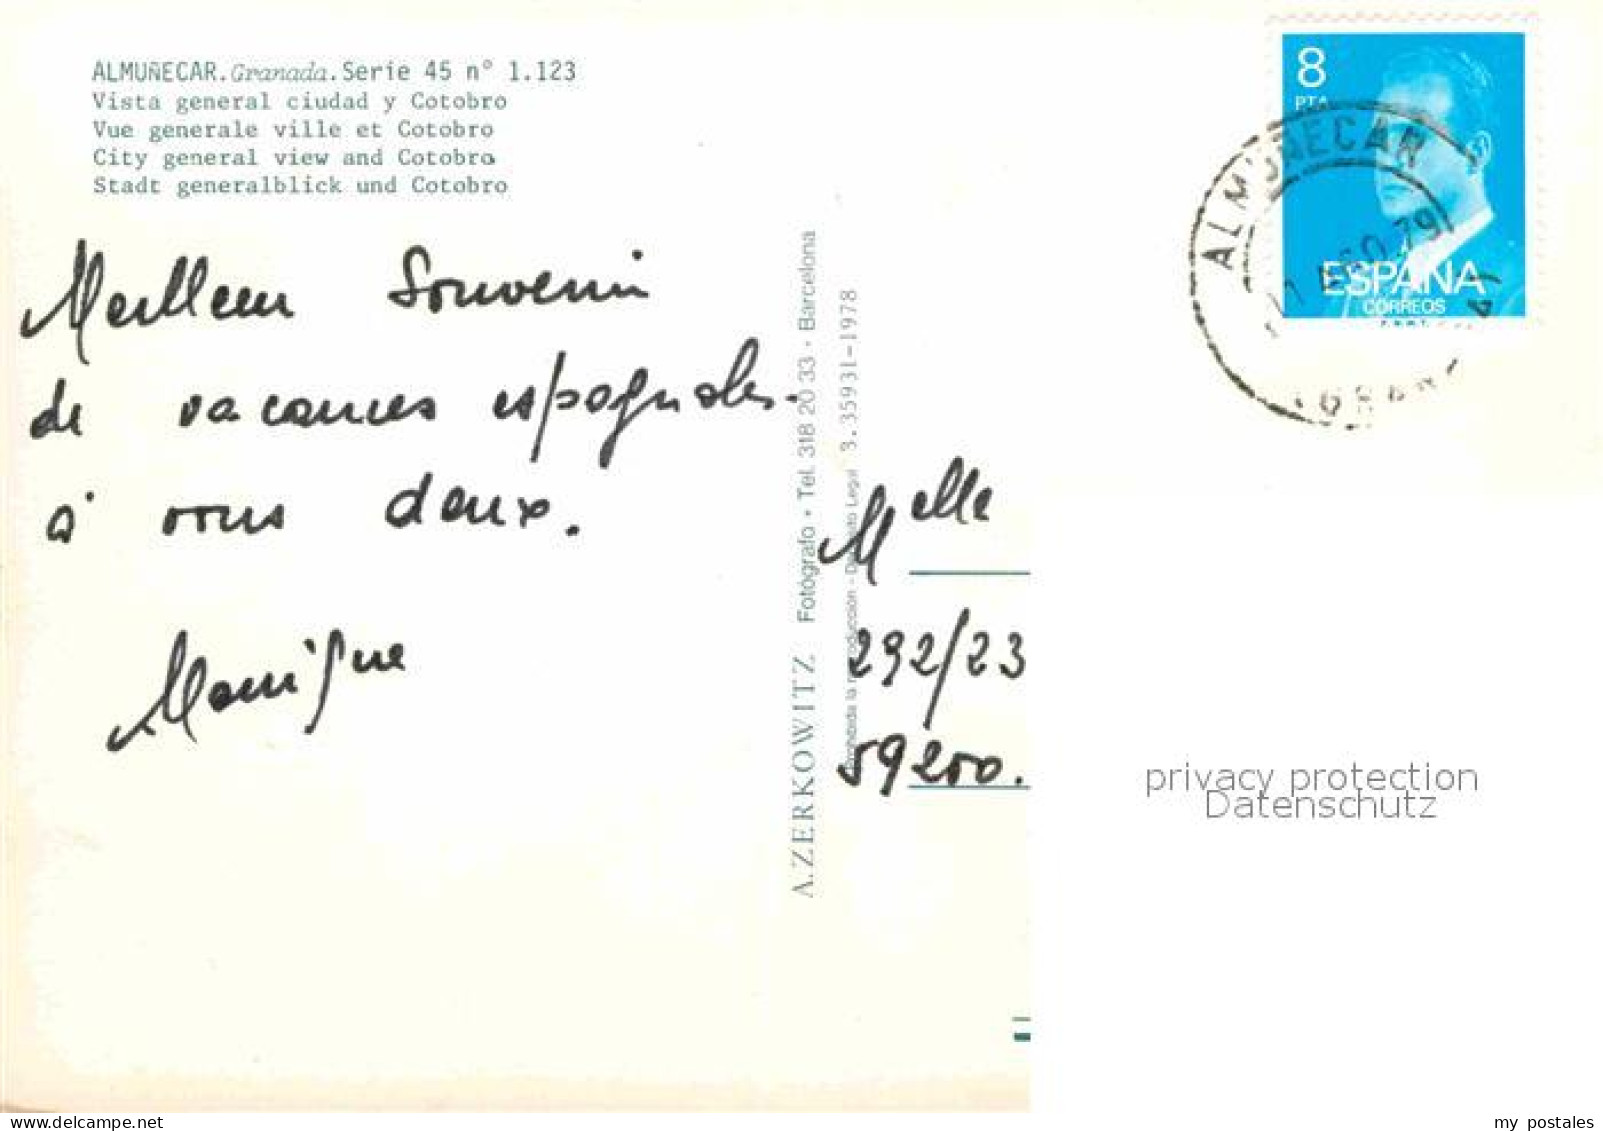 ALMUÑECAR. Granada. Serie 45 n° 1.123
Vista general ciudad y Cotobro
Vue generale ville et Cotobro
City general view and Cotobro
Stadt generalblick und Cotobro
8
PTA
ESPAÑA
CORREOS
F.N.M.T.
ALMUÑECAR
AGO 79
Meilleur Souvenir
de vacances espagnoles
à vous deux.
Monique
A. ZERKOWITZ Fotógrafo · Tel. 318 20 33 · Barcelona
Prohibida la reproducción - Depósito Legal 3.35931-1978
Melle
292/23
59200.
privacy protection
Datenschutz
my postales